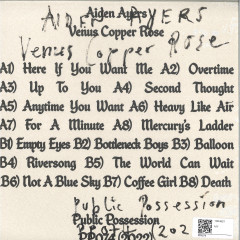 Aiden Ayers
AIDEN AYERS
Venus Copper Rose
Venus Copper Rose
A1) Here If You Want Me A2) Overtime
A3) Up To You A4) Second Thought
A5) Anytime You Want A6) Heavy Like Air
A7) For A Minute A8) Mercury's Ladder
B1) Empty Eyes B2) Bottleneck Boys B3) Balloon
B4) Riversong B5) The World Can Wait
B6) Not A Blue Sky B7) Coffee Girl B8) Death
Public Possession
Public Possession
PP074 (2022)